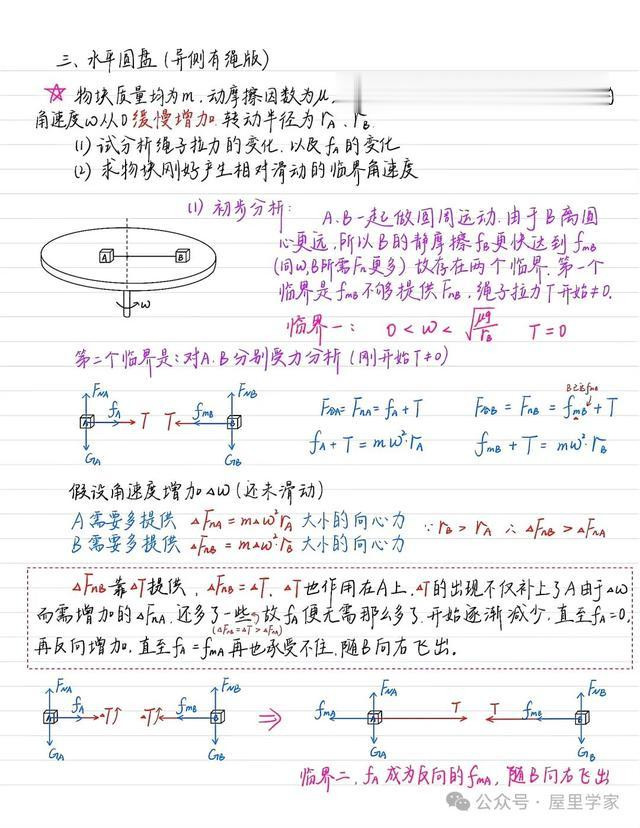 三、水平圆盘(异侧有绳版)
☆ 物块质量均为m,动摩擦因数为μ,
角速度ω从0缓慢增加,转动半径为rA、rB
(1) 试分析绳子拉力的变化,以及fA的变化
(2) 求物块刚好产生相对滑动的临界角速度
(1) 初步分析:
A、B一起做圆周运动,由于B离圆
心更远,所以B的静摩擦fB更快达到fmB
(同ω,B所需Fn更多) 故存在两个临界,第一个
临界是fmB不够提供FnB,绳子拉力T开始≠0.
A B
ω
临界一: 0<ω<√(μg/rB) T=0
第二个临界是:对A、B分别受力分析(刚开始T≠0)
B已达fmB
FNA fA T GA A
T fmB FNB GB B
F合A=FnA=fA+T F合B=FnB=fmB+T
fA+T=mω²·rA fmB+T=mω²·rB
假设角速度增加△ω(还未滑动)
A需要多提供 △FnA=m△ω²rA 大小的向心力
B需要多提供 △FnB=m△ω²·rB 大小的向心力
∵rB>rA ∴△FnB>△FnA
△FnB靠△T提供,△FnB=△T,△T也作用在A上,△T的出现不仅补上了A由于△ω
而需增加的△FnA,还多了一些,故fA便无需那么多了,开始逐渐减少,直至fA=0,
(△FnB=△T>△FnA)
再反向增加,直至fA=fmA再也承受不住,随B向右飞出.
FNA fA △T↑ GA A
△T↑ fmB FNB GB B
⇒
fmA FNA T GA A
T fmB FNB GB B
临界二,fA成为反向的fmA,随B向右飞出
公众号·屋里学家